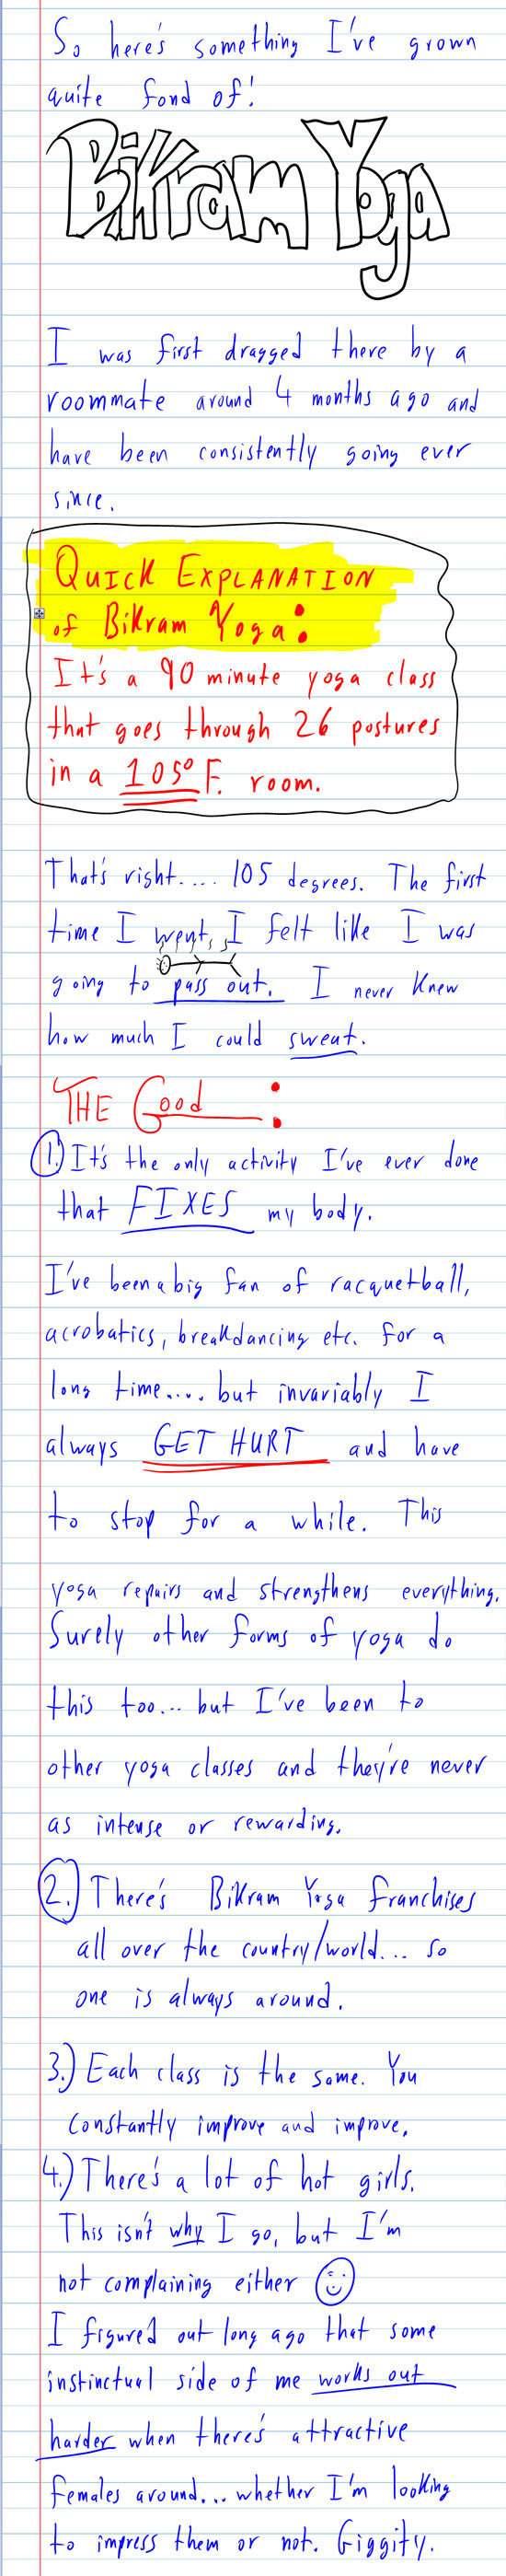 So here's something I've grown
quite fond of!
Bikram Yoga
I was first dragged there by a
roommate around 4 months ago and
have been consistently going ever
since.
QUICK EXPLANATION
of Bikram Yoga:
It's a 90 minute yoga class
that goes through 26 postures
in a 105° F. room.
That's right.... 105 degrees. The first
time I went, I felt like I was
going to pass out. I never knew
how much I could sweat.
THE Good:
1.) It's the only activity I've ever done
that FIXES my body.
I've been a big fan of racquetball,
acrobatics, breakdancing etc. for a
long time.... but invariably I
always GET HURT and have
to stop for a while. This
yoga repairs and strengthens everything.
Surely other forms of yoga do
this too... but I've been to
other yoga classes and they're never
as intense or rewarding.
2.) There's Bikram Yoga franchises
all over the country/world... so
one is always around.
3.) Each class is the same. You
constantly improve and improve.
4.) There's a lot of hot girls.
This isn't why I go, but I'm
not complaining either
I figured out long ago that some
instinctual side of me works out
harder when there's attractive
females around... whether I'm looking
to impress them or not. Giggity.